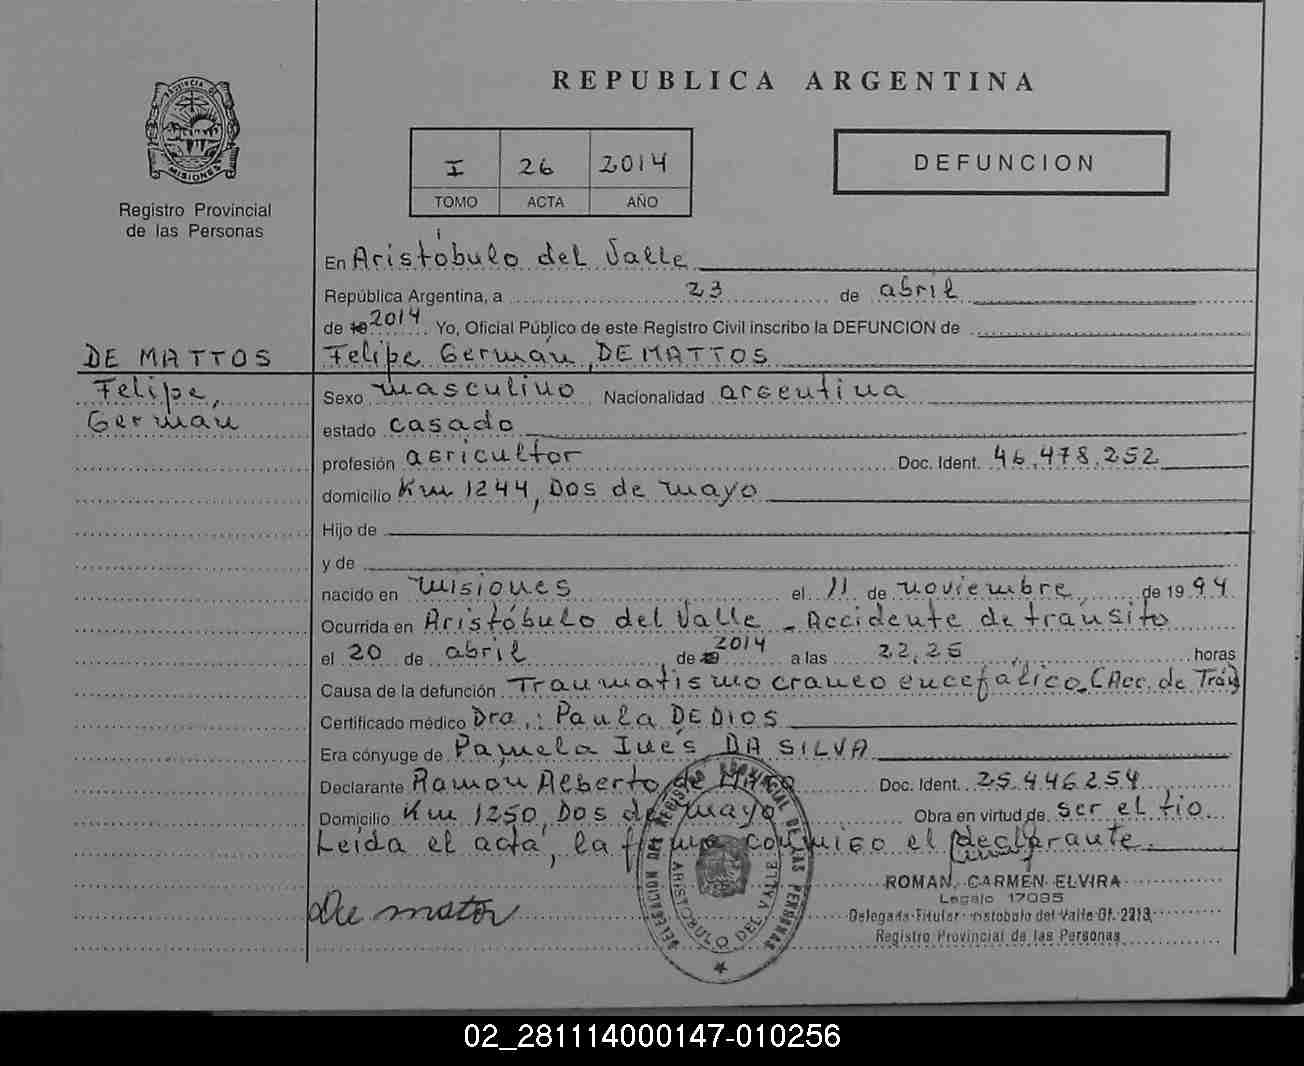 REPUBLICA ARGENTINA
PROVINCIA DE MISIONES
Registro Provincial
de las Personas
I 26 2014
TOMO ACTA AÑO
DEFUNCION
En Aristóbulo del Valle
República Argentina, a 23 de abril
de 19 2014 Yo, Oficial Público de este Registro Civil inscribo la DEFUNCION de
DE MATTOS
Felipe,
German
Felipe Germán, DE MATTOS
Sexo masculino Nacionalidad argentina
estado casado
profesión agricultor Doc. Ident. 46.478.252
domicilio Km 1244, Dos de mayo
Hijo de
y de
nacido en misiones el 11 de noviembre de 1994
Ocurrida en Aristóbulo del Valle - Accidente de tránsito
el 20 de abril de 2014 a las 22,25 horas
Causa de la defunción Traumatismo craneo encefálico. (Acc. de Trán)
Certificado médico Dra.: Paula DE DIOS
Era cónyuge de Pamela Inés DA SILVA
Declarante Ramón Alberto de Doc. Ident. 25.446.254
Domicilio Km 1250, Dos de mayo Obra en virtud de ser el tío.
Leída el acta, la firma conmigo el declarante.
ROMAN, CARMEN ELVIRA
Legajo 17095
Delegada Titular Aristobulo del Valle Of. 2213
Registro Provincial de las Personas
DELEGACION DEL REGISTRO PROVINCIAL DE LAS PERSONAS
ARISTOBULO DEL VALLE
02_281114000147-010256